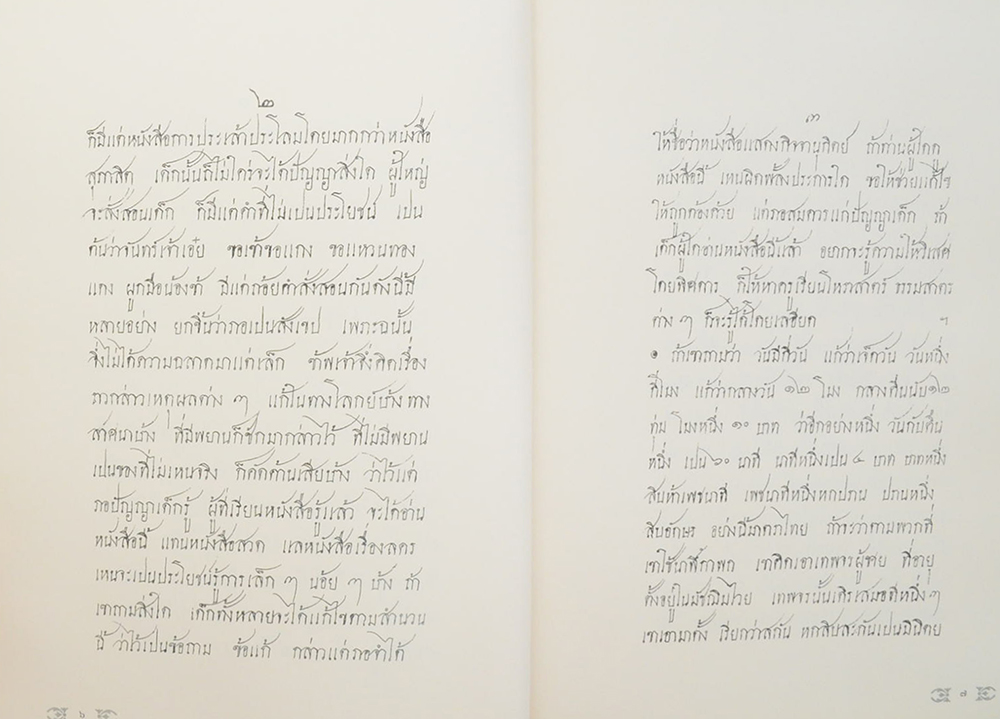 ๒
ก็มีแต่หนังสือการประเล้าประโลมโดยมากกว่าหนังสือ
สุภาสิต เด็กนั้นก็ไม่ใคร่จะได้ปัญญาสิ่งใด ผู้ใหญ่
จะสั่งสอนเด็ก ก็มีแต่คำที่ไม่เป็นประโยชน์ เป็น
ต้นว่าจันทร์เจ้าเอ๋ย ขอเข้าขอแกง ขอแหวนทอง
แดง ผูกมือน้องข้า มีแต่ถ้อยคำสั่งสอนกันดังนี้มี
หลายอย่าง ยกขึ้นว่าภอเป็นสังเขป เพราะฉนั้น
จึ่งไม่ได้ความฉลาดมาแต่เล็ก ข้าพเจ้าจึ่งคิดเรื่อง
ราวกล่าวเหตุผลต่าง ๆ แก้ในทางโลกย์บ้าง ทาง
สาศนาบ้าง ที่มีพยานก็ชักมากล่าวไว้ ที่ไม่มีพยาน
เป็นของที่ไม่เหนจริง ก็คัดค้านเสียบ้าง ว่าไว้แต่
ภอปัญญาเด็กรู้ ผู้ที่เรียนหนังสือรู้แล้ว จะได้อ่าน
หนังสือนี้ แทนหนังสือสวด แลหนังสือเรื่องลคร
เหนจะเป็นประโยชน์รู้การเล็ก ๆ น้อย ๆ บ้าง ถ้า
เขาถามสิ่งใด เด็กทั้งหลายจะได้แก้ไขตามสำนวน
นี้ ว่าไว้เป็นข้อถาม ข้อแก้ กล่าวแต่ภอจำได้
๖
๓
ให้ชื่อว่าหนังสือแสดงกิจจานุกิตย์ ถ้าท่านผู้ใดดู
หนังสือนี้ เหนผิดพลั้งประการใด ขอให้ช่วยแก้ไข
ให้ถูกต้องด้วย แต่ภอสมควรแก่ปัญญาเด็ก ถ้า
เด็กผู้ใดอ่านหนังสือนี้แล้ว อยากจะรู้ความให้วิเสศ
โดยพิศดาร ก็ให้หาครูเรียนโหราสาตร์ ธรรมสาตร
ต่าง ๆ ก็จะรู้ได้โดยเลอียด ฯ
๏ ถ้าเขาถามว่า วันมีกี่วัน แก้ว่าเจ็ดวัน วันหนึ่ง
กี่โมง แก้ว่ากลางวัน ๑๒ โมง กลางคืนนับ ๑๒
ทุ่ม โมงหนึ่ง ๑๐ บาท ว่าอีกอย่างหนึ่ง วันกับคืน
หนึ่ง เปน ๖๐ นาที นาทีหนึ่งเปน ๔ บาท บาทหนึ่ง
สิบห้าเพชนาที เพชนาทีหนึ่งหกปราณ ปราณหนึ่ง
สิบอักษร อย่างนี้มคธไทย ถ้าจะว่าตามพวกที่
เขาใช้นาฬิกาพก เขาคิดเอาเทพจรผู้ชาย ที่อายุ
ตั้งอยู่ในมัชฌิมไวย เทพจรนั้นเดิรเสมอทีหนึ่ง ๆ
เขาเอามาตั้ง เรียกว่าสกัน หกสิบสะกันเปนมินิต
๗